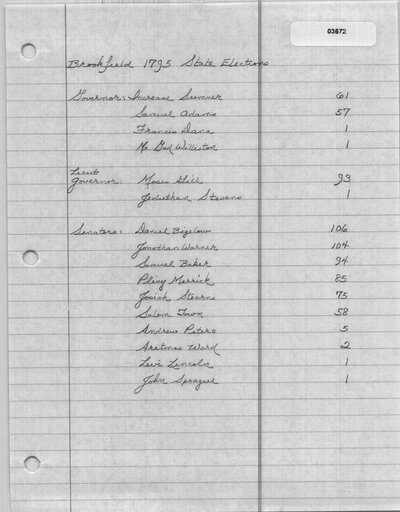 03672
Brookfield 1795 State Elections
Governor: Increase Sumner 61
Samuel Adams 57
Francis Dana 1
Mr. Gad Williston 1
Lieut
Governor: Moses Gill 93
Jeduthan Stevens 1
Senators: Daniel Bigelow 106
Jonathan Warner 104
Samuel Baker 94
Pliny Merrick 85
Josiah Stearns 75
Salem Town 58
Andrew Peters 5
Artmas Ward 2
Levi Lincoln 1
John Sprague 1